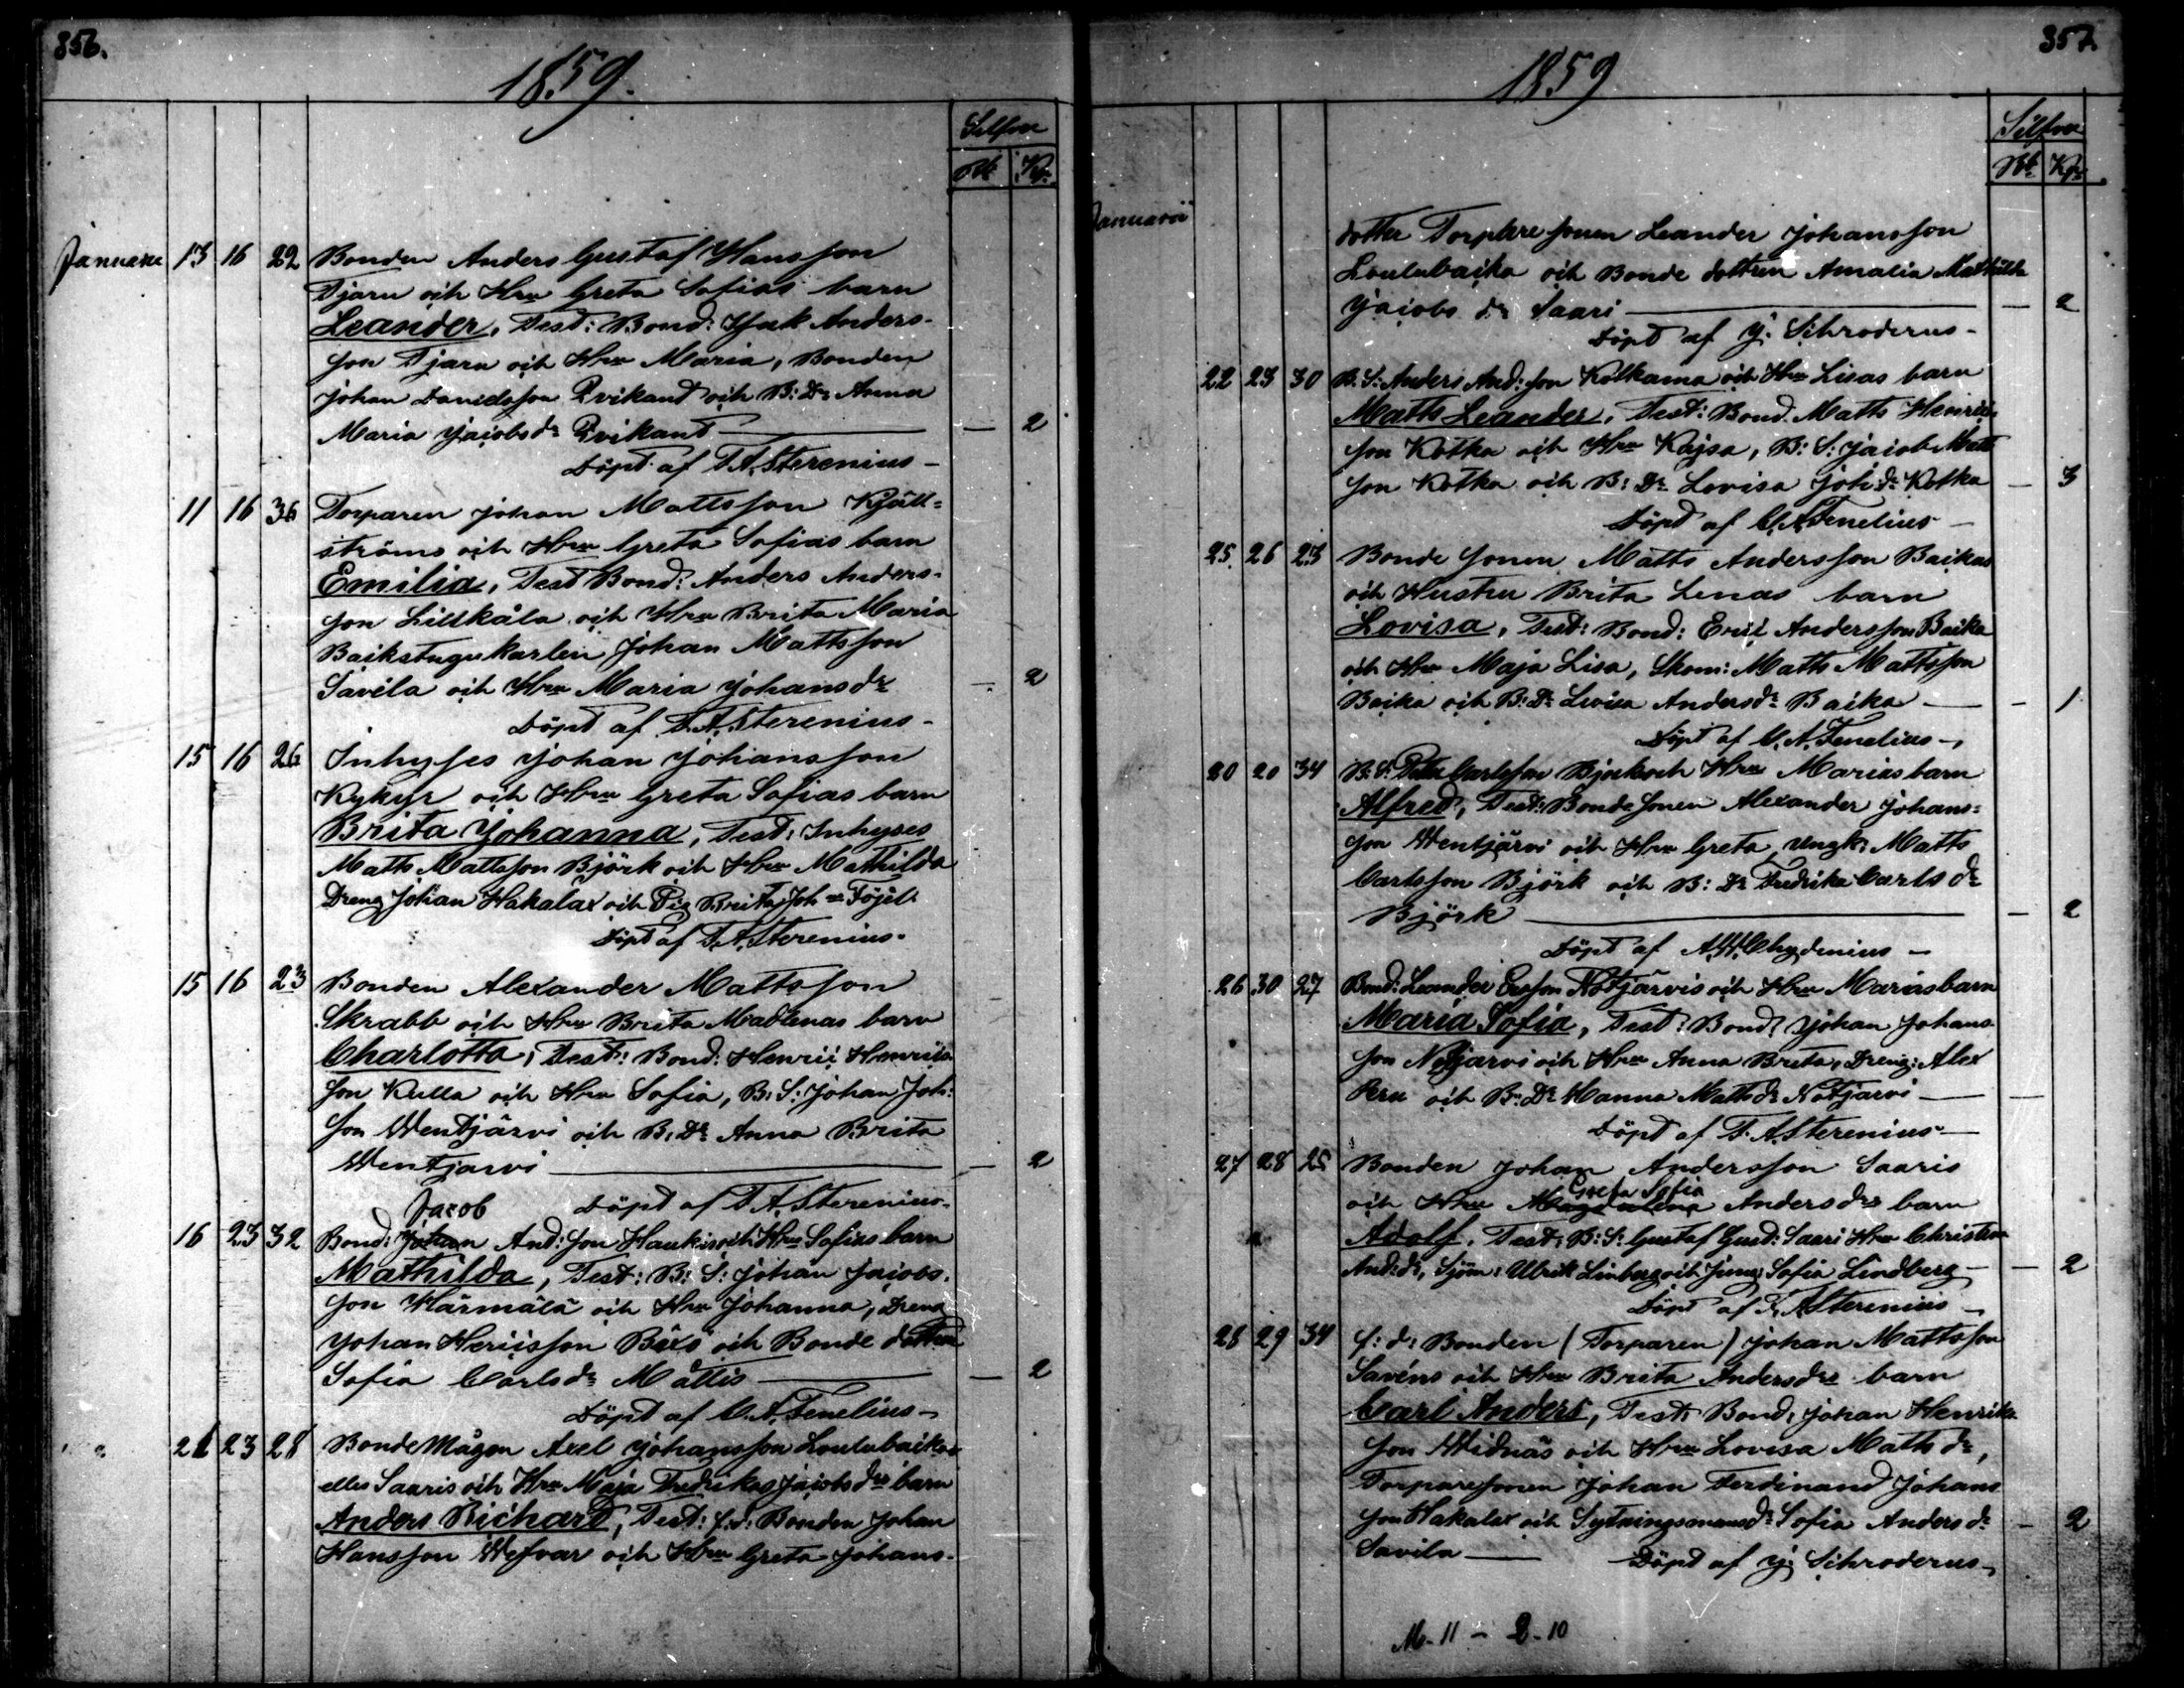 356.
1859.
Silfver
Rb Kp.
Januarii 13 16 22 Bonden Anders Gustaf Hansson
Tjaru och Hru Greta Sofias barn
Leander, Test: Bond: Isak Anders-
son Tjaru och Hru Maria, Bonden
Johan Danielsson Qvikant och B: Dr Anna
Maria Jacobsdr Qvikant — 2
Döpt af F. A. Sterenius -
11 16 36 Torparen Johan Mattsson Kjäll-
ströms och Hru Greta Sofias barn
Emilia, Test Bond: Anders Anders-
son Lillkåla och Hru Brita Maria
Backstugukarlen Johan Mattsson
Savela och Hru Maria Johansdr — 2
Döpt af F. A. Sterenius -
15 16 26 Inhyses Johan Johansson
Kykyr och Hru Greta Sofias barn
Brita Johanna, Test: Inhyses
Matts Mattsson Björk och Hru Mathilda
Dreng Johan Hakalax och Pig Brita Joh
Döpt af F. A. Sterenius.
15 16 23 Bonden Alexander Mattsson
Skrabb och Hru Brita Madlenas barn
Charlotta, Test: Bond: Henric Henrics-
son Kulla och Hru Sofia, B: S: Johan Joh:
son Wentjärvi och B: Dr Anna Brita
Wentjarvi — 2
Jacob Döpt af F. A. Sterenius-
16 23 32 Bond: Johan And: son Haukis och Hru Sofias barn
Mathilda, Test: B: S: Johan Jacobs-
son Härmälä och Hru Johanna, Dreng
Johan Hericsson och Bonde dottren
Sofia Carlsdr Mattis — 2
Döpt af C. A. Fenelius -
21 23 28 Bonde Mågen Axel Johansson Loulubackas
eller Saaris och Hru Maja Fredrikas Jacobsdrs barn
Anders Richard, Test: f: d: Bonden Johan
Hansson Wefvar och Hru Greta Johans-
357.
1859
Silfver
Rb Kp
Januarii
dotter Torpare sonen Leander Johansson
Loulubacka och Bonde dottren Amalia Mathilda
Jacobs dr Saari — 2
Döpt af J. Schroderus -
22 23 30 B. S: Anders And: son Kotkama och Hru Lisas barn
Matts Leander, Test: Bond. Matts Henric-
son Kotka och Hru Kajsa, B: S: Jacob Matt
son Kotka och B: Dr Lovisa Joh: dr Kotka — 3
Döpt af C. A. Fenelius -
25 26 23 Bonde sonen Matts Andersson Backas
och Hustru Brita Lenas barn
Lovisa, Test: Bond: Eric Andersson Backa
och Hru Maja Lisa, Skom: Matts Mattsson
Backa och B: Dr Lovisa Andersdr Backa — 1
Döpt af C. A. Fenelius -
20 20 34 B: S: Petter Carlsson Björk och Hru Marias barn
Alfred, Test: Bonde sonen Alexander Johans-
son Wentjärvi och Hru Greta, Ungk: Matts
Carlsson Björk och B: Dr Fredrika Carls dr
Björk — 2
Döpt af A. H. Chydenius -
26 30 27 Bond: Leander Ersson Nötjärvis och Hru Marias barn
Maria Sofia, Test: Bond: Johan Johans
son Nötjarvi och Hru Anna Brita, Dreng: Alex
och B: Dr Hanna Matts dr Nötjarvi —
Döpt af F. A. Sterenius -
27 28 25 Bonden Johan Andersson Saaris
Greta Sofia
och Hru Magdalena Andersdrs barn
Adolf, Test: B: S: Gustaf Gust: Saari Hru Christina
And: dr, Sjöm: Ulrik Linberg och Jung: Sofia Lindberg — 2
Döpt af F. A. Sterenius -
28 29 34 f: d: Bonden (Torparen) Johan Mattsson
Savéns och Hru Brita Andersdrs barn
Carl Anders, Test: Bond: Johan Henriks-
son Widnäs och Hru Lovisa Matts dr,
Torparesonen Johan Ferdinand Johans
son Hakalax och Sytningsmansdr Sofia Anders dr — 2
Savila — Döpt af J. Schroderus -
M - 11 - Q - 10